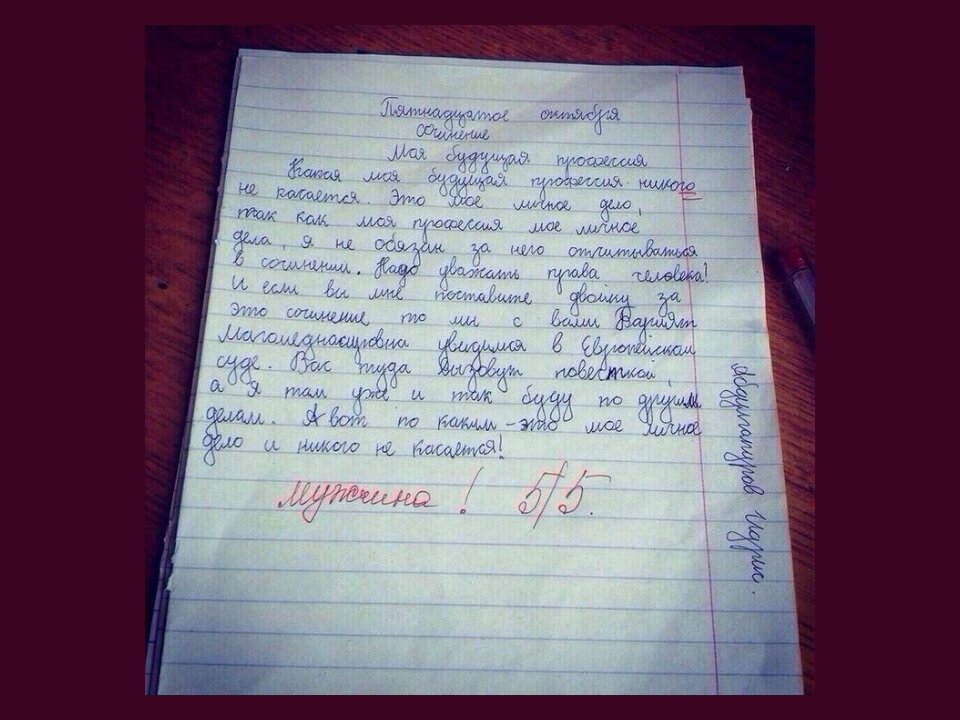 Пятнадцатое октября
Сочинение
Моя будущая профессия
Какая моя будущая профессия никого
не касается. Это мое личное дело,
так как моя профессия мое личное
дела, я не обязан за него отчитываться
в сочинении. Надо уважать права человека!
И если вы мне поставите двойку за
это сочинение то мы с вами Барият
Магомеднасировна увидимся в Европейском
суде. Вас туда вызовут повесткой,
а я там уже и так буду по другим
делам. А вот по каким - это мое личное
дело и никого не касается!
мужчина! 5/5.
Абдулгапуров Идрис.